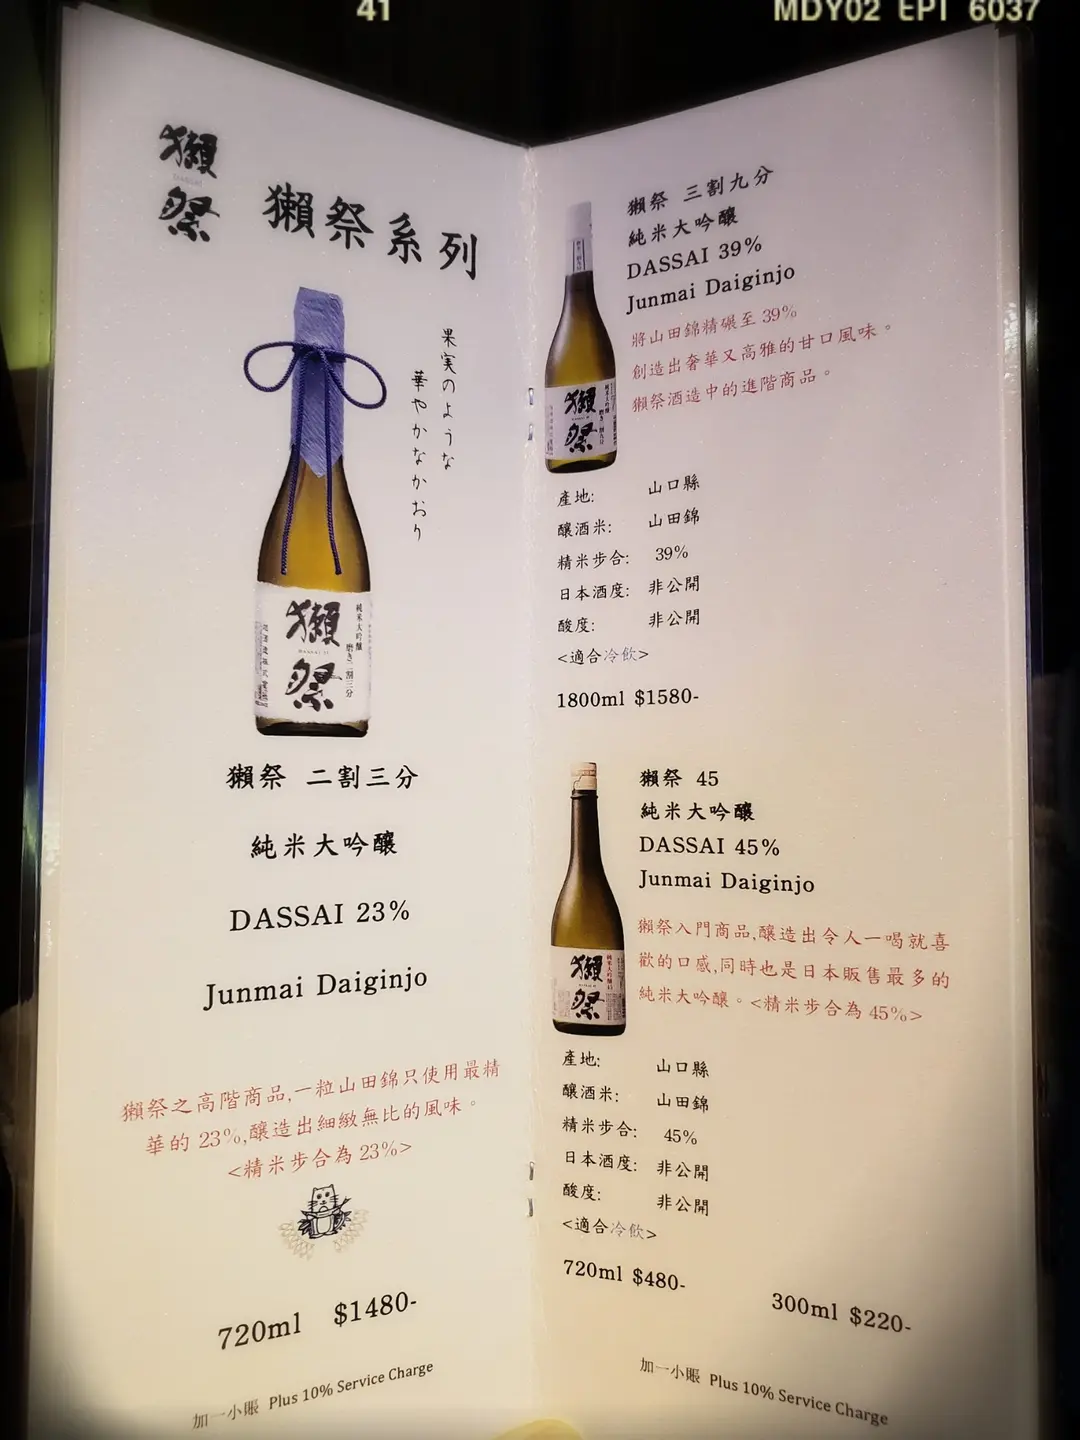 41
MDY02 EPI 6037
獺
DASSAI
祭
獺祭系列
果実のような
華やかなかおり
獺
祭
純米大吟醸
磨き二割三分
獺祭 二割三分
純米大吟釀
DASSAI 23%
Junmai Daiginjo
獺祭之高階商品,一粒山田錦只使用最精
華的 23%,釀造出細緻無比的風味。
<精米步合為 23%>
720ml $1480-
加一小賬 Plus 10% Service Charge
獺祭 三割九分
純米大吟釀
DASSAI 39%
Junmai Daiginjo
將山田錦精碾至 39%
創造出奢華又高雅的甘口風味。
獺祭酒造中的進階商品。
獺
祭
純米大吟醸
磨き三割九分
產地: 山口縣
釀酒米: 山田錦
精米步合: 39%
日本酒度: 非公開
酸度: 非公開
<適合冷飲>
1800ml $1580-
獺祭 45
純米大吟釀
DASSAI 45%
Junmai Daiginjo
獺祭入門商品,釀造出令人一喝就喜
歡的口感,同時也是日本販售最多的
純米大吟釀。<精米步合為 45%>
獺
祭
純米大吟醸45
產地: 山口縣
釀酒米: 山田錦
精米步合: 45%
日本酒度: 非公開
酸度: 非公開
<適合冷飲>
720ml $480-
300ml $220-
加一小賬 Plus 10% Service Charge